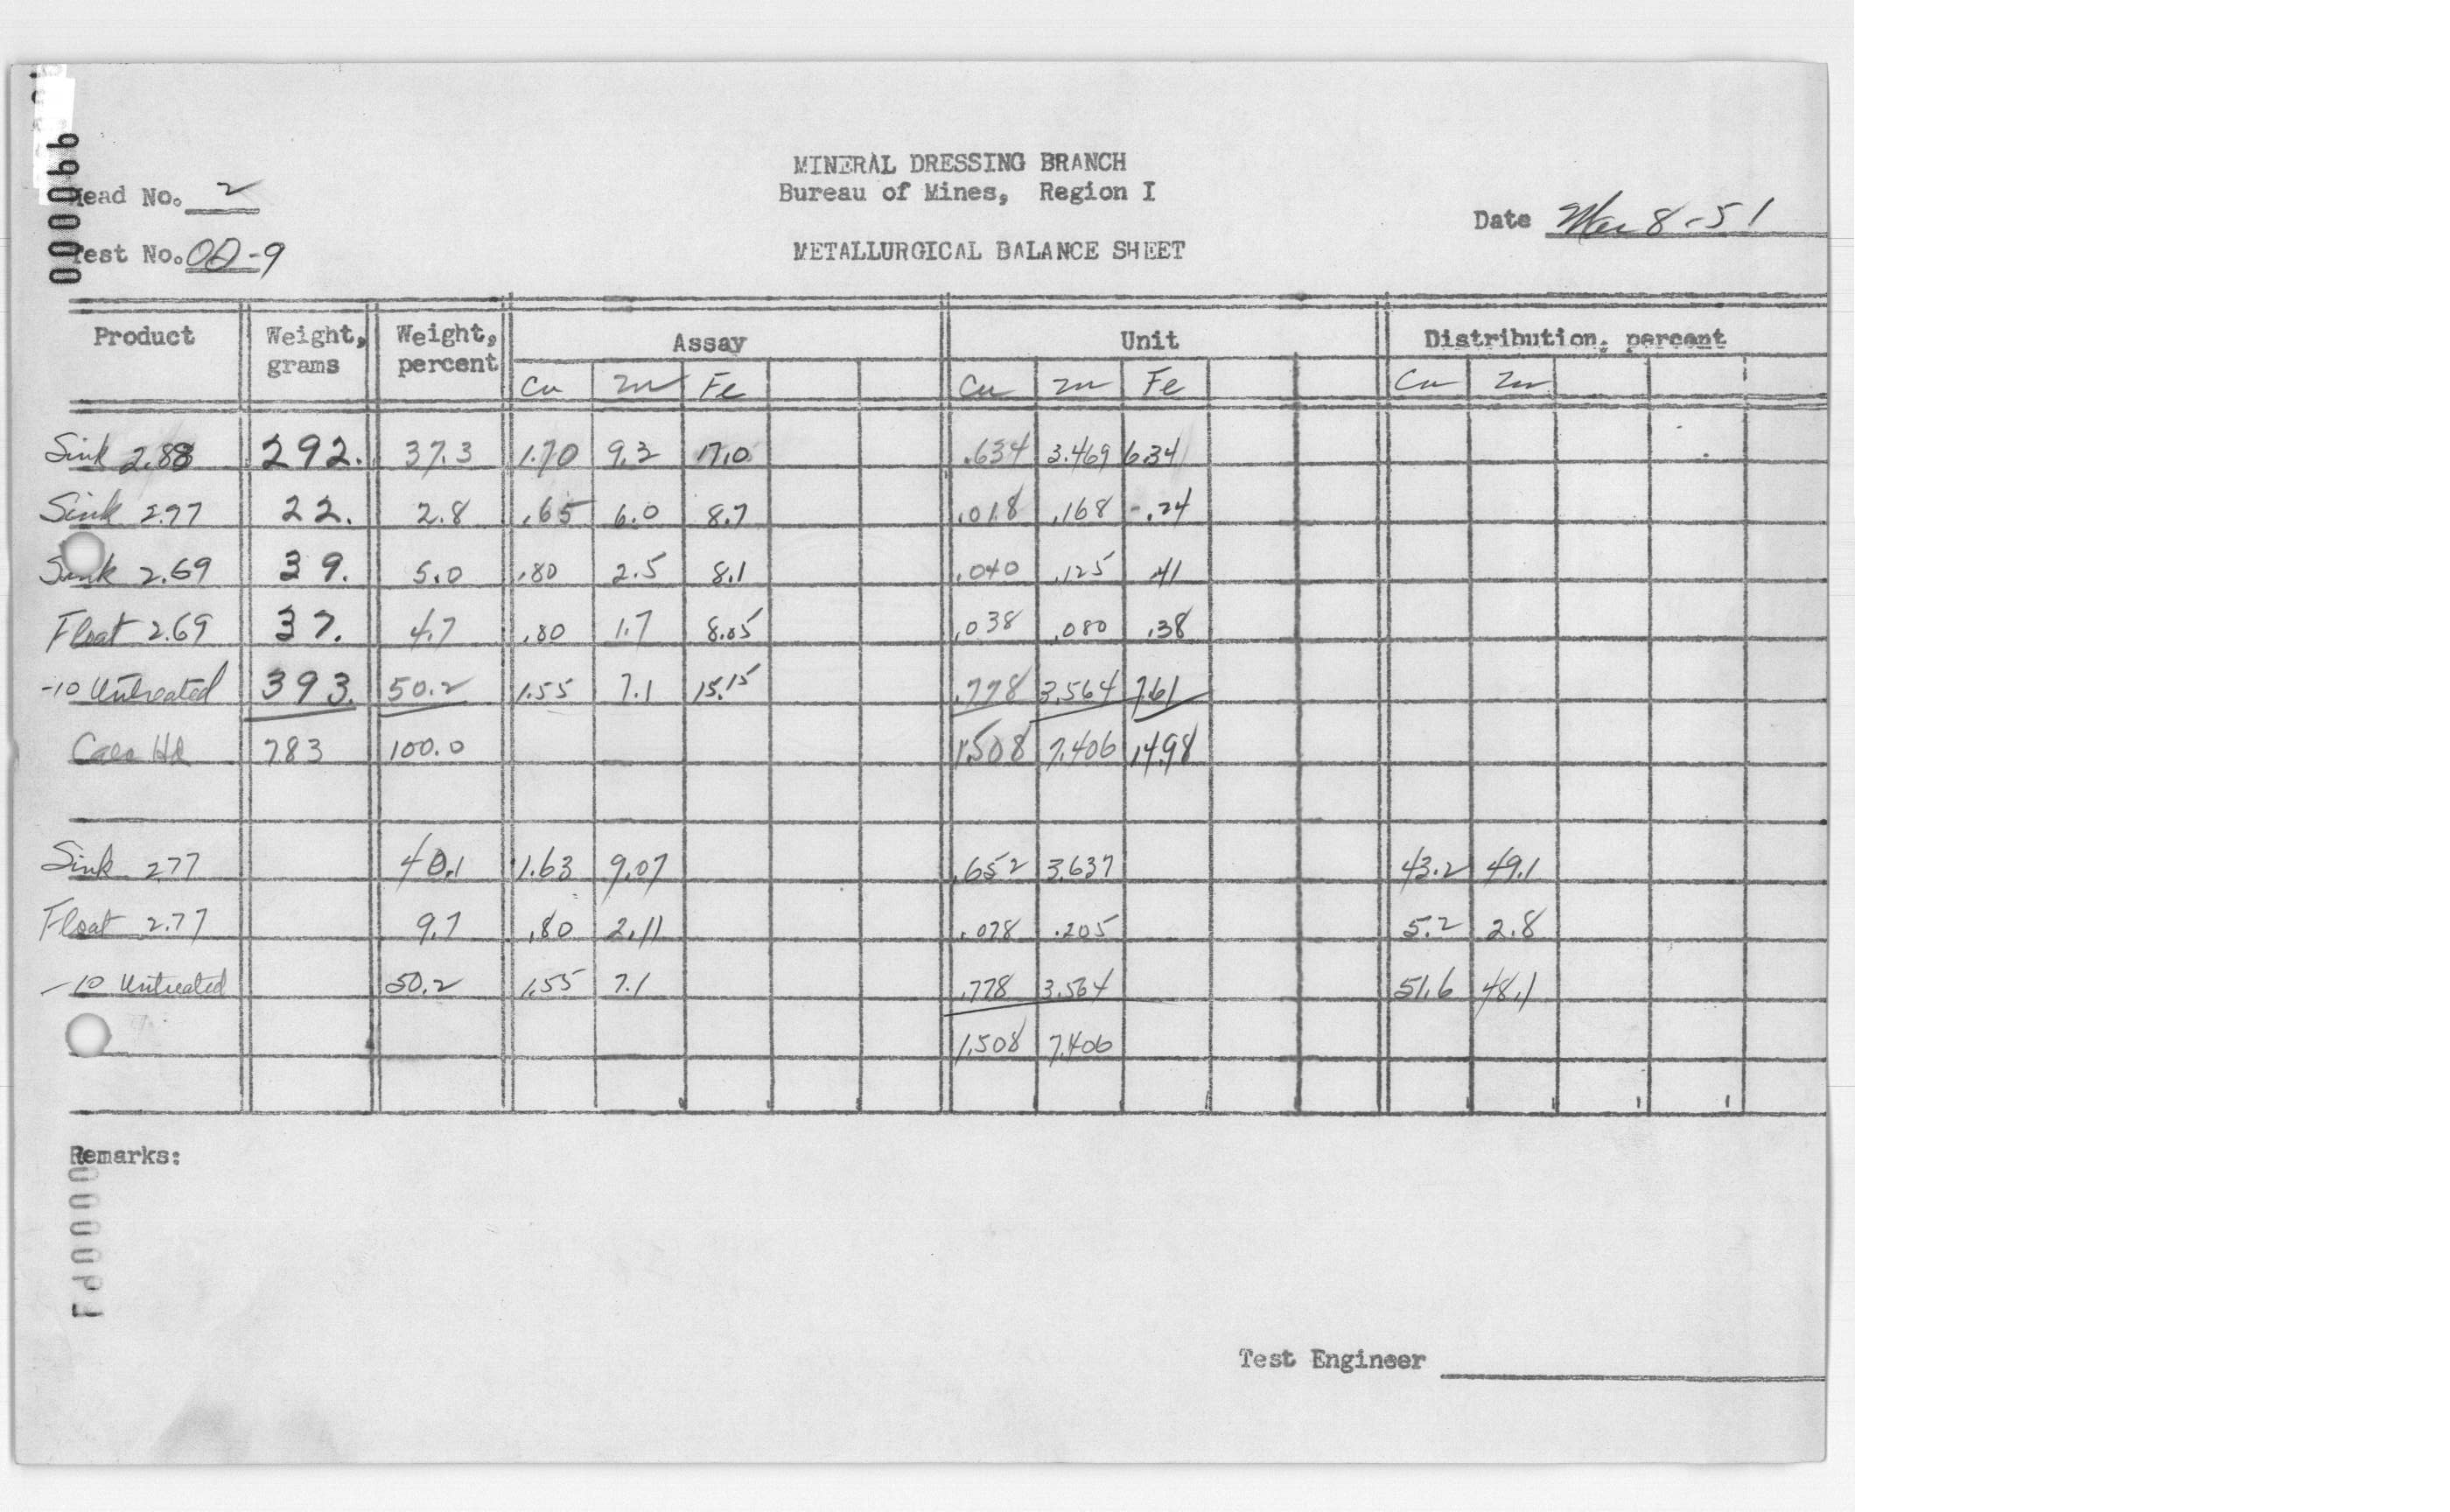 000066
MINERAL DRESSING BRANCH
Bureau of Mines, Region I
Head No. 2
Date Mar 8-51
Test No. OD-9
METALLURGICAL BALANCE SHEET
Product Weight, grams Weight, percent Assay Unit Distribution, percent
Cu Zn Fe Cu Zn Fe Cu Zn
Sink 2.88 292. 37.3 1.70 9.3 17.0 .634 3.469 6.34
Sink 2.77 22. 2.8 .65 6.0 8.7 .018 .168 .24
Sink 2.69 39. 5.0 .80 2.5 8.1 .040 .125 .41
Float 2.69 37. 4.7 .80 1.7 8.05 .038 .080 .38
-10 Untreated 393. 50.2 1.55 7.1 15.15 .778 3.564 7.61
Calc Hd 783 100.0 1.508 7.406 14.98
Sink 2.77 40.1 1.63 9.07 .652 3.637 43.2 49.1
Float 2.77 9.7 .80 2.11 .078 .205 5.2 2.8
-10 Untreated 50.2 1.55 7.1 .778 3.564 51.6 48.1
1.508 7.406
Remarks:
Test Engineer